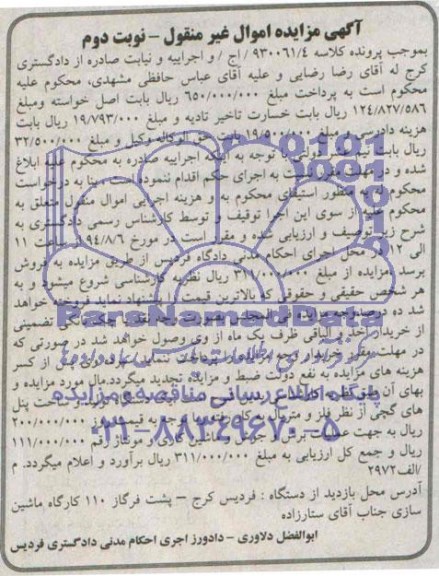 آگهی مزایده اموال غیر منقول – نوبت دوم
بموجب پرونده کلاسه ۹۳۰۰۶۱/٤ / اج / و اجراییه و نیابت صادره از دادگستری
کرج له آقای رضا رضایی و علیه آقای عباس حافظی مشهدی، محکوم علیه
محکوم است به پرداخت مبلغ ۶۵۰/۰۰۰/۰۰۰ ریال بابت اصل خواسته ومبلغ
۱۲٤/۸۲۷/۵۸۶ ریال بابت خسارت تاخیر تادیه و مبلغ ۱۹/۷۹۳/۰۰۰ ریال بابت
هزینه دادرسی و مبلغ ۱۹/۵۰۰/۰۰۰ بابت حق الوکاله وکیل و مبلغ ۳۲/۵۰۰/۰۰۰
ریال بابت نیم عشر دولتی با توجه به اینکه اجراییه صادره به محکوم علیه ابلاغ
شده و در مهلت مقرر نسبت به اجرای حکم اقدام ننموده است، بنا به درخواست
محکوم له به منظور استیفای محکوم به و هزینه اجرایی اموال منقول متعلق به
محکوم علیه از سوی این اجرا توقیف و توسط کارشناس رسمی دادگستری به
شرح زیر توصیف و ارزیابی شده و مقرر است در مورخ ۹٤/۸/۶ از ساعت ۱۱
الی ۱۲ در محل اجرای احکام مدنی دادگاه فردیس از طریق مزایده به فروش
برسد. مزایده از مبلغ ۳۱۱/۰۰۰/۰۰۰ ریال نظریه کارشناسی شروع میشود و به
هر شخص حقیقی و حقوقی که بالاترین قیمت را پیشنهاد نماید فروخته خواهد
شد ده درصد
از خریدار اخذ و الباقی ظرف یک ماه از وی وصول خواهد شد در صورتی که
در مهلت مقرر خریدار
هزینه های مزایده به نفع دولت ضبط و مزایده تجدید میگردد. مال مورد مزایده و
بهای آن
های گچی از نظر فلز و متریال به کار رفته با توجه به قیمت روز ۲۰۰/۰۰۰/۰۰۰
ریال به جهت عملیات برش و جوش و ماشین کاری و مونتاژ رقم ۱۱۱/۰۰۰/۰۰۰
ریال و جمع کل ارزیابی به مبلغ ۳۱۱/۰۰۰/۰۰۰ ریال برآورد و اعلام میگردد. م
/الف۲۹۷۲
آدرس محل بازدید از دستگاه : فردیس کرج – پشت فرگاز ۱۱۰ کارگاه ماشین
سازی جناب آقای ستارزاده
ابوالفضل دلاوری – دادورز اجری احکام مدنی دادگستری فردیس
ParsNamadData
پایگاه اطلاع رسانی مناقصه و مزایده
۰۲۱–۸۸۳٤۹۶۷۰–۵